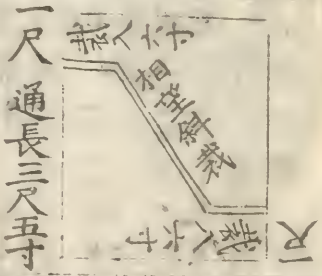 一尺 通長三尺五寸
裁入六寸
相望斜裁
裁入六寸
一尺